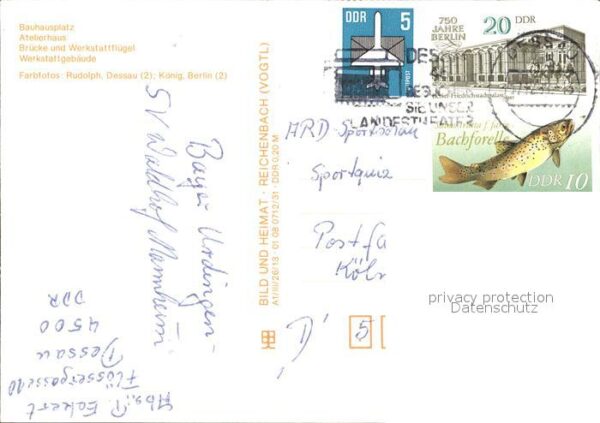 Bauhausplatz
Atelierhaus
Brücke und Werkstattflügel
Werkstattgebäude
Farbfotos: Rudolph, Dessau (2); König, Berlin (2)
Bayer Uerdingen -
SV Waldhof Mannheim
Abs.: P. Eckert
Flössergasse
Dessau
4500
DDR
BILD UND HEIMAT · REICHENBACH (VOGTL)
A1/III/26/13 · 01 08 0712/31 · DDR 0,20 M
DDR 5
750 JAHRE BERLIN 20 DDR
DES
SIE UNSER
LANDESTHEATER
Bachforelle
DDR 10
ARD-Sportschau
Sportquiz
Postfa
Köln
D 5
privacy protection
Datenschutz